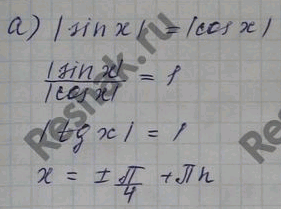 а) |sin x| = |cos x|
|sin x| / |cos x| = 1
|tg x| = 1
x = ± π/4 + πn
Reshak.ru